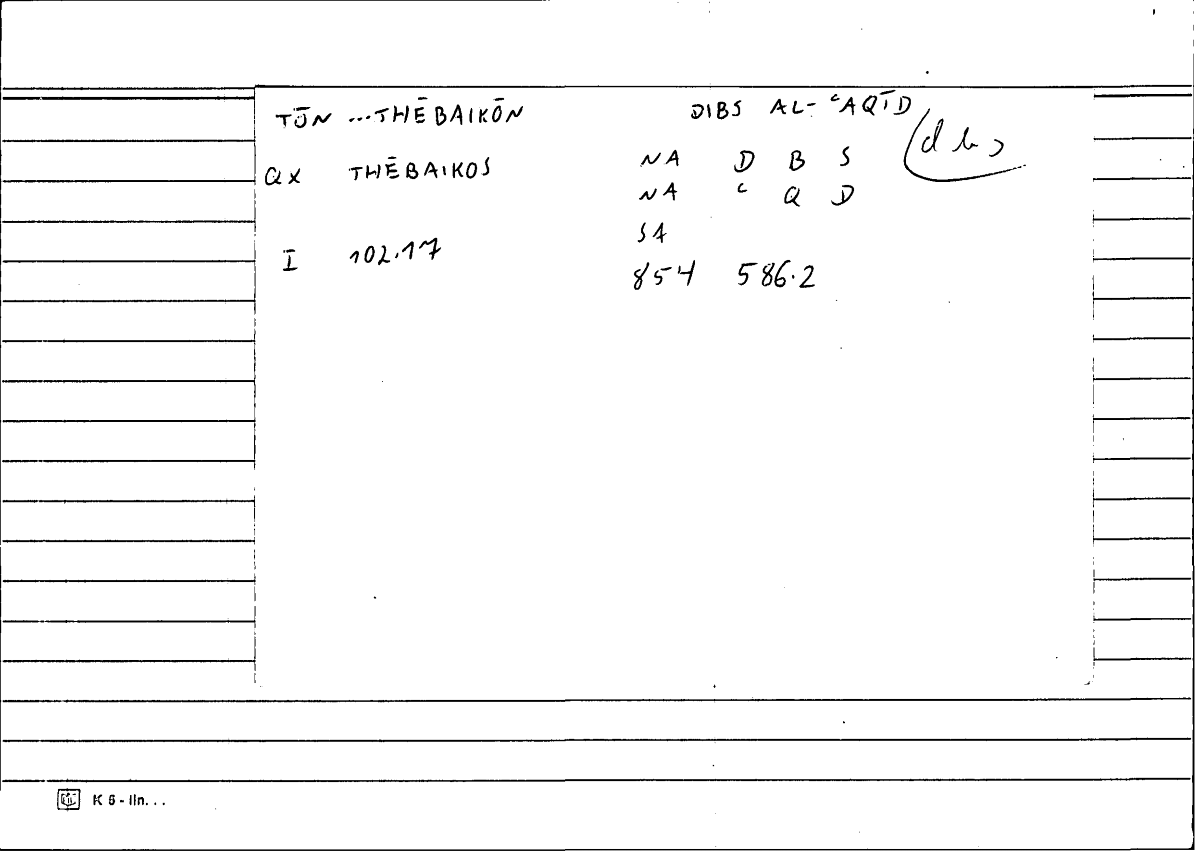 TŌN ...THĒBAIKŌN DIBS AL-ʿAQĪD
(dbs
QX THĒBAIKOS NA D B S
NA ʿ Q D
SA
I 102.17
854 586.2
K 6 - lin...